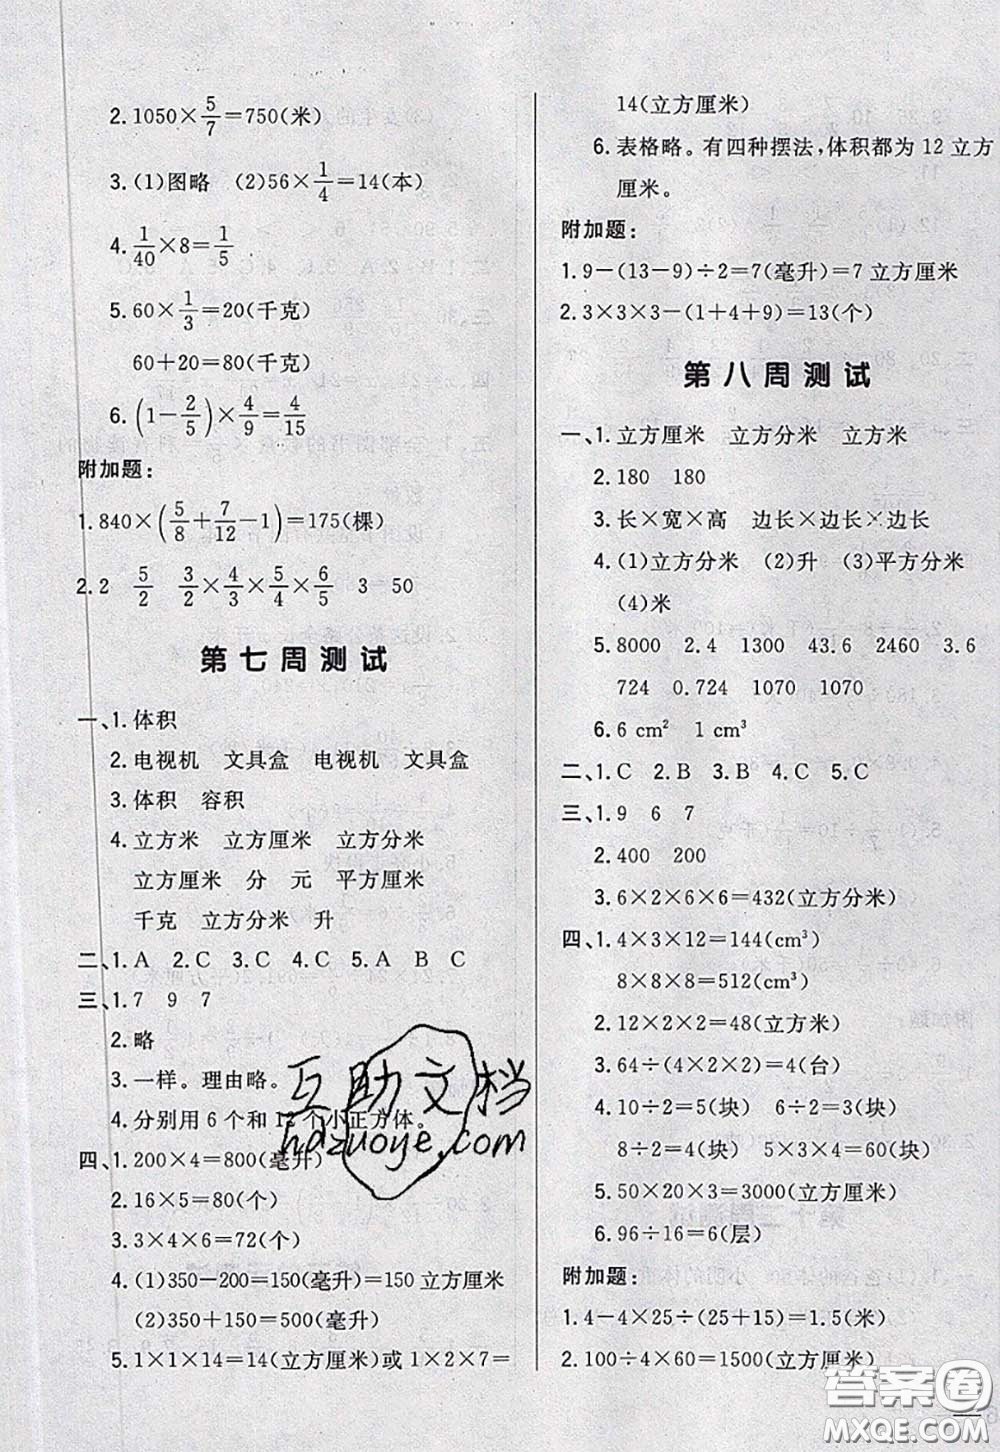 2.1050×5/7=750(米)
3.(1)图略 (2)56×1/4=14(本)
4.1/40×8=1/5
5.60×1/3=20(千克)
60+20=80(千克)
6.(1-2/5)×4/9=4/15
附加题:
1.840×(5/8+7/12-1)=175(棵)
2.2 5/2 3/2×4/3×5/4×6/5 3 50
第七周测试
一、1.体积
2.电视机 文具盒 电视机 文具盒
3.体积 容积
4.立方米 立方厘米 立方分米
立方厘米 分 元 平方厘米
千克 立方分米 升
二、1.A 2.C 3.C 4.C 5.A B C
三、1.7 9 7
2.略
3.一样。理由略。
4.分别用6个和12个小正方体。
四、1.200×4=800(毫升)
2.16×5=80(个)
3.3×4×6=72(个)
4.(1)350-200=150(毫升)=150立方厘米
(2)350+150=500(毫升)
5.1×1×14=14(立方厘米)或1×2×7=
14(立方厘米)
6.表格略。有四种摆法,体积都为12立方
厘米。
附加题:
1.9-(13-9)÷2=7(毫升)=7立方厘米
2.3×3×3-(1+4+9)=13(个)
第八周测试
一、1.立方厘米 立方分米 立方米
2.180 180
3.长×宽×高 边长×边长×边长
4.(1)立方分米 (2)升 (3)平方分米
(4)米
5.8000 2.4 1300 43.6 2460 3.6
724 0.724 1070 1070
6.6 cm² 1 cm³
二、1.C 2.B 3.B 4.C 5.C
三、1.9 6 7
2.400 200
3.6×2×6×6=432(立方分米)
四、1.4×3×12=144(cm³)
8×8×8=512(cm³)
2.12×2×2=48(立方米)
3.64÷(4×2×2)=4(台)
4.10÷2=5(块) 6÷2=3(块)
8÷2=4(块) 5×3×4=60(块)
5.50×20×3=3000(立方厘米)
6.96÷16=6(层)
附加题:
1.4-4×25÷(25+15)=1.5(米)
2.100÷4×60=1500(立方厘米)
互助文档
hdzuoye.com
答案圈
MXQE.COM